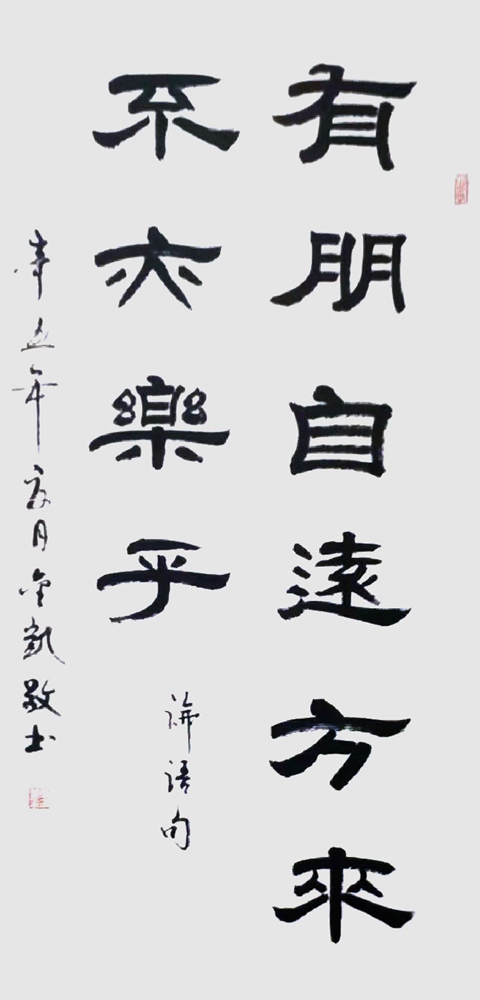 有朋自遠方來
不亦樂乎
論語句
辛丑年夏月金凱敬书